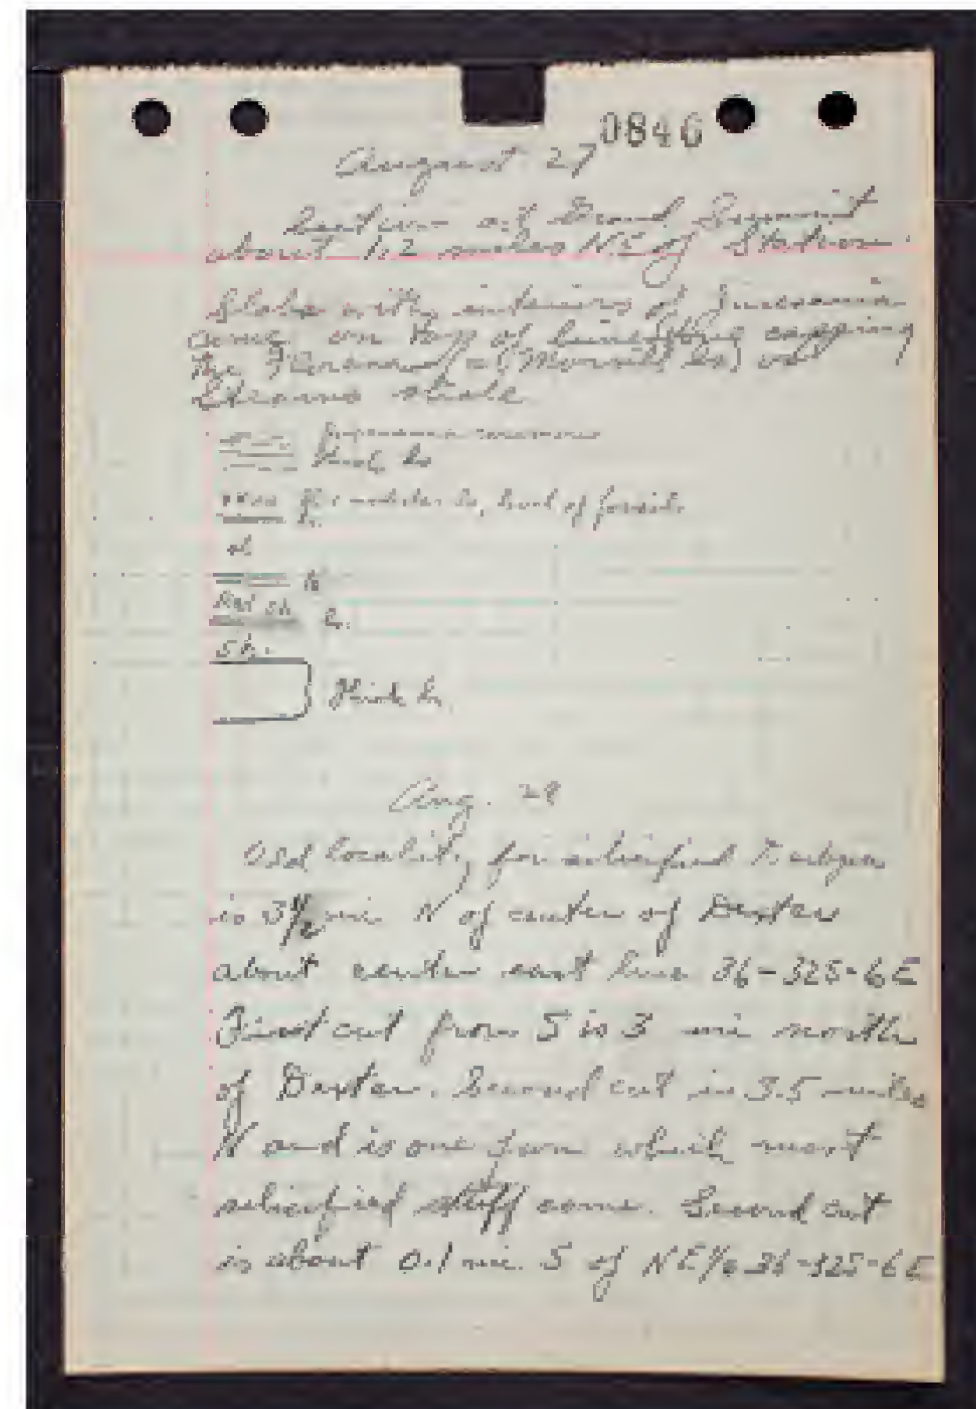 0846
August 27
Section at Grand Summit
about 1.2 miles NE of Station.
Slabs with interiors of Juresania
come on top of limestone capping
the Florena / (Morrill ls) or
Stearns shale
Juresania
Thick ls
nodular ls, level of fossils
ls.
sh
ls
Red sh
ls.
Sh.
Thick ls.
Aug. 28
Old locality for silicified Derbyia
is 3 1/2 mi N of center of Dexter
about center east line 36-32S-6E
First cut from S is 3 mi north
of Dexter. Second cut is 3.5 miles
N and is one from which most
silicified stuff come. Second cut
is about 0.1 mi. S of NE/c 36-32S-6E